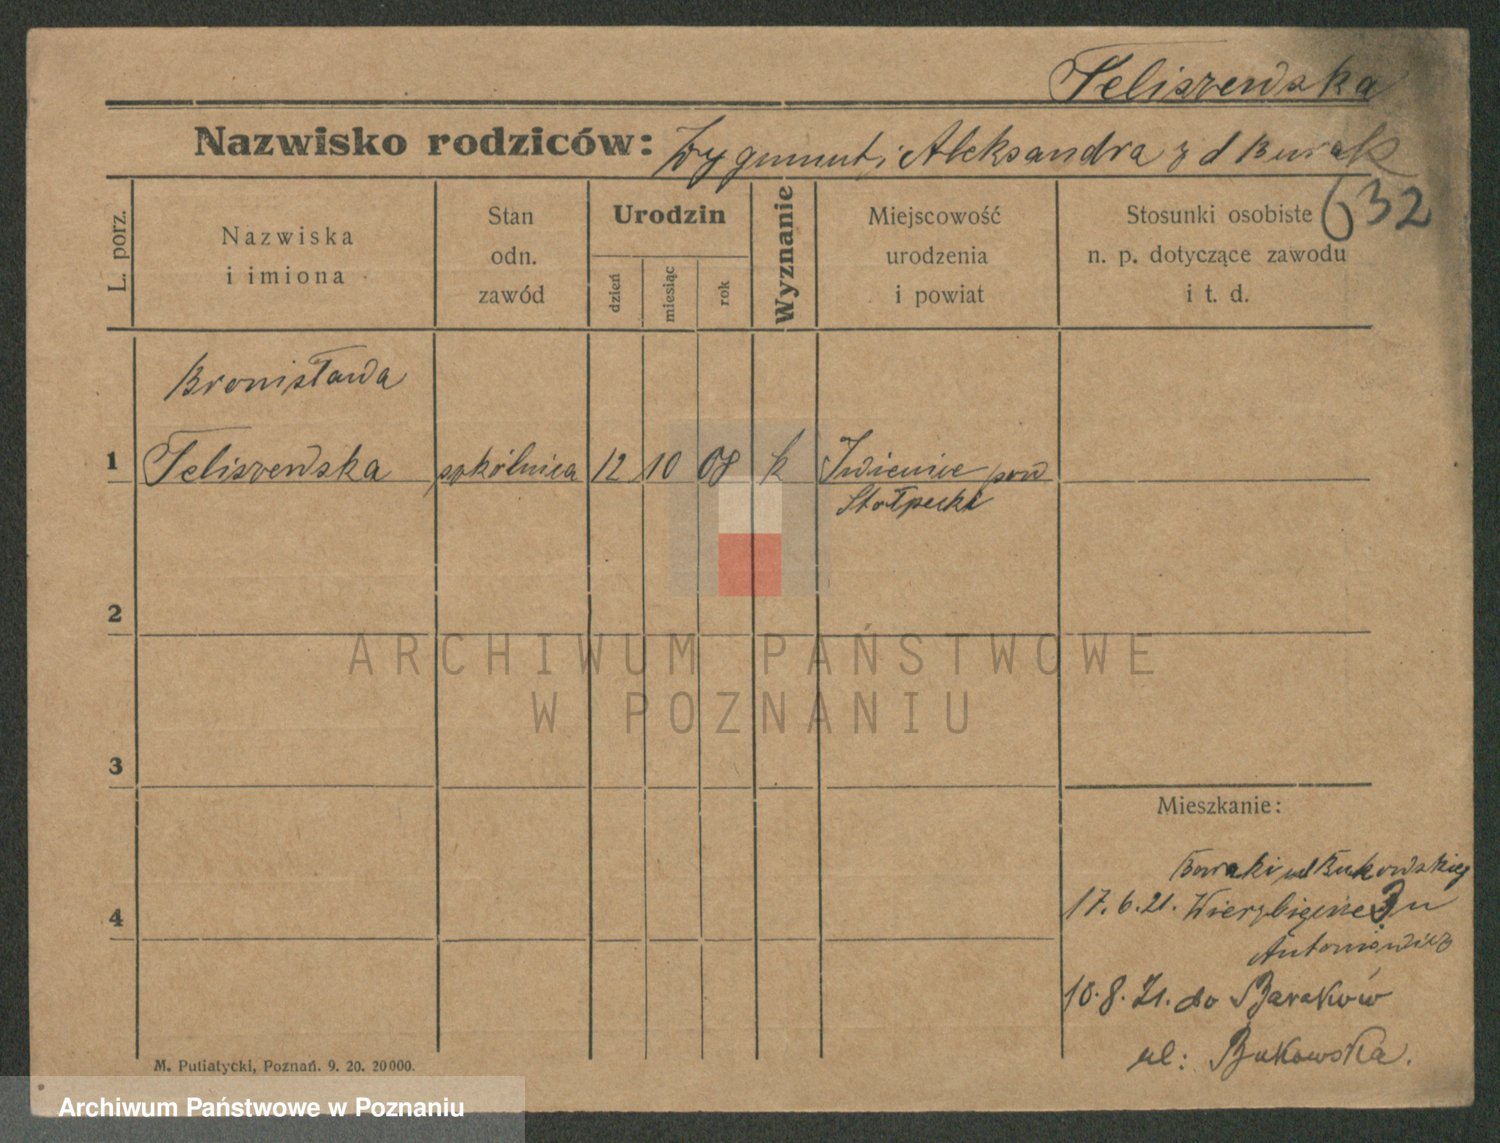 Feliszewska
Nazwisko rodziców: Zygmunt i Aleksandra z d Burak
632
L. porz.
Nazwiska
i imiona
Stan
odn.
zawód
Urodzin
dzień
miesiąc
rok
Wyznanie
Miejscowość
urodzenia
i powiat
Stosunki osobiste
n. p. dotyczące zawodu
i t. d.
Bronisława
1 Feliszewska 12 10 08 k Iwieniec pow
Stołpecki
2
ARCHIWUM PAŃSTWOWE
W POZNANIU
3
Mieszkanie:
Baraki ul Bukowskiej
4
17.6.21. Wierzbięcice u
Antoniewicz
10.8.21. do Baraków
ul: Bukowska.
M. Putiatycki, Poznań. 9. 20. 20000.
Archiwum Państwowe w Poznaniu